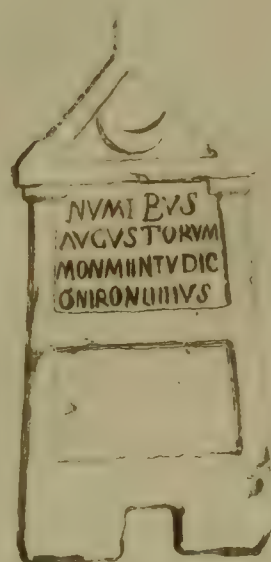 NVMIBVS
AVGVSTORVM
MONMIINTVDIC
ONIRONIIIIVS